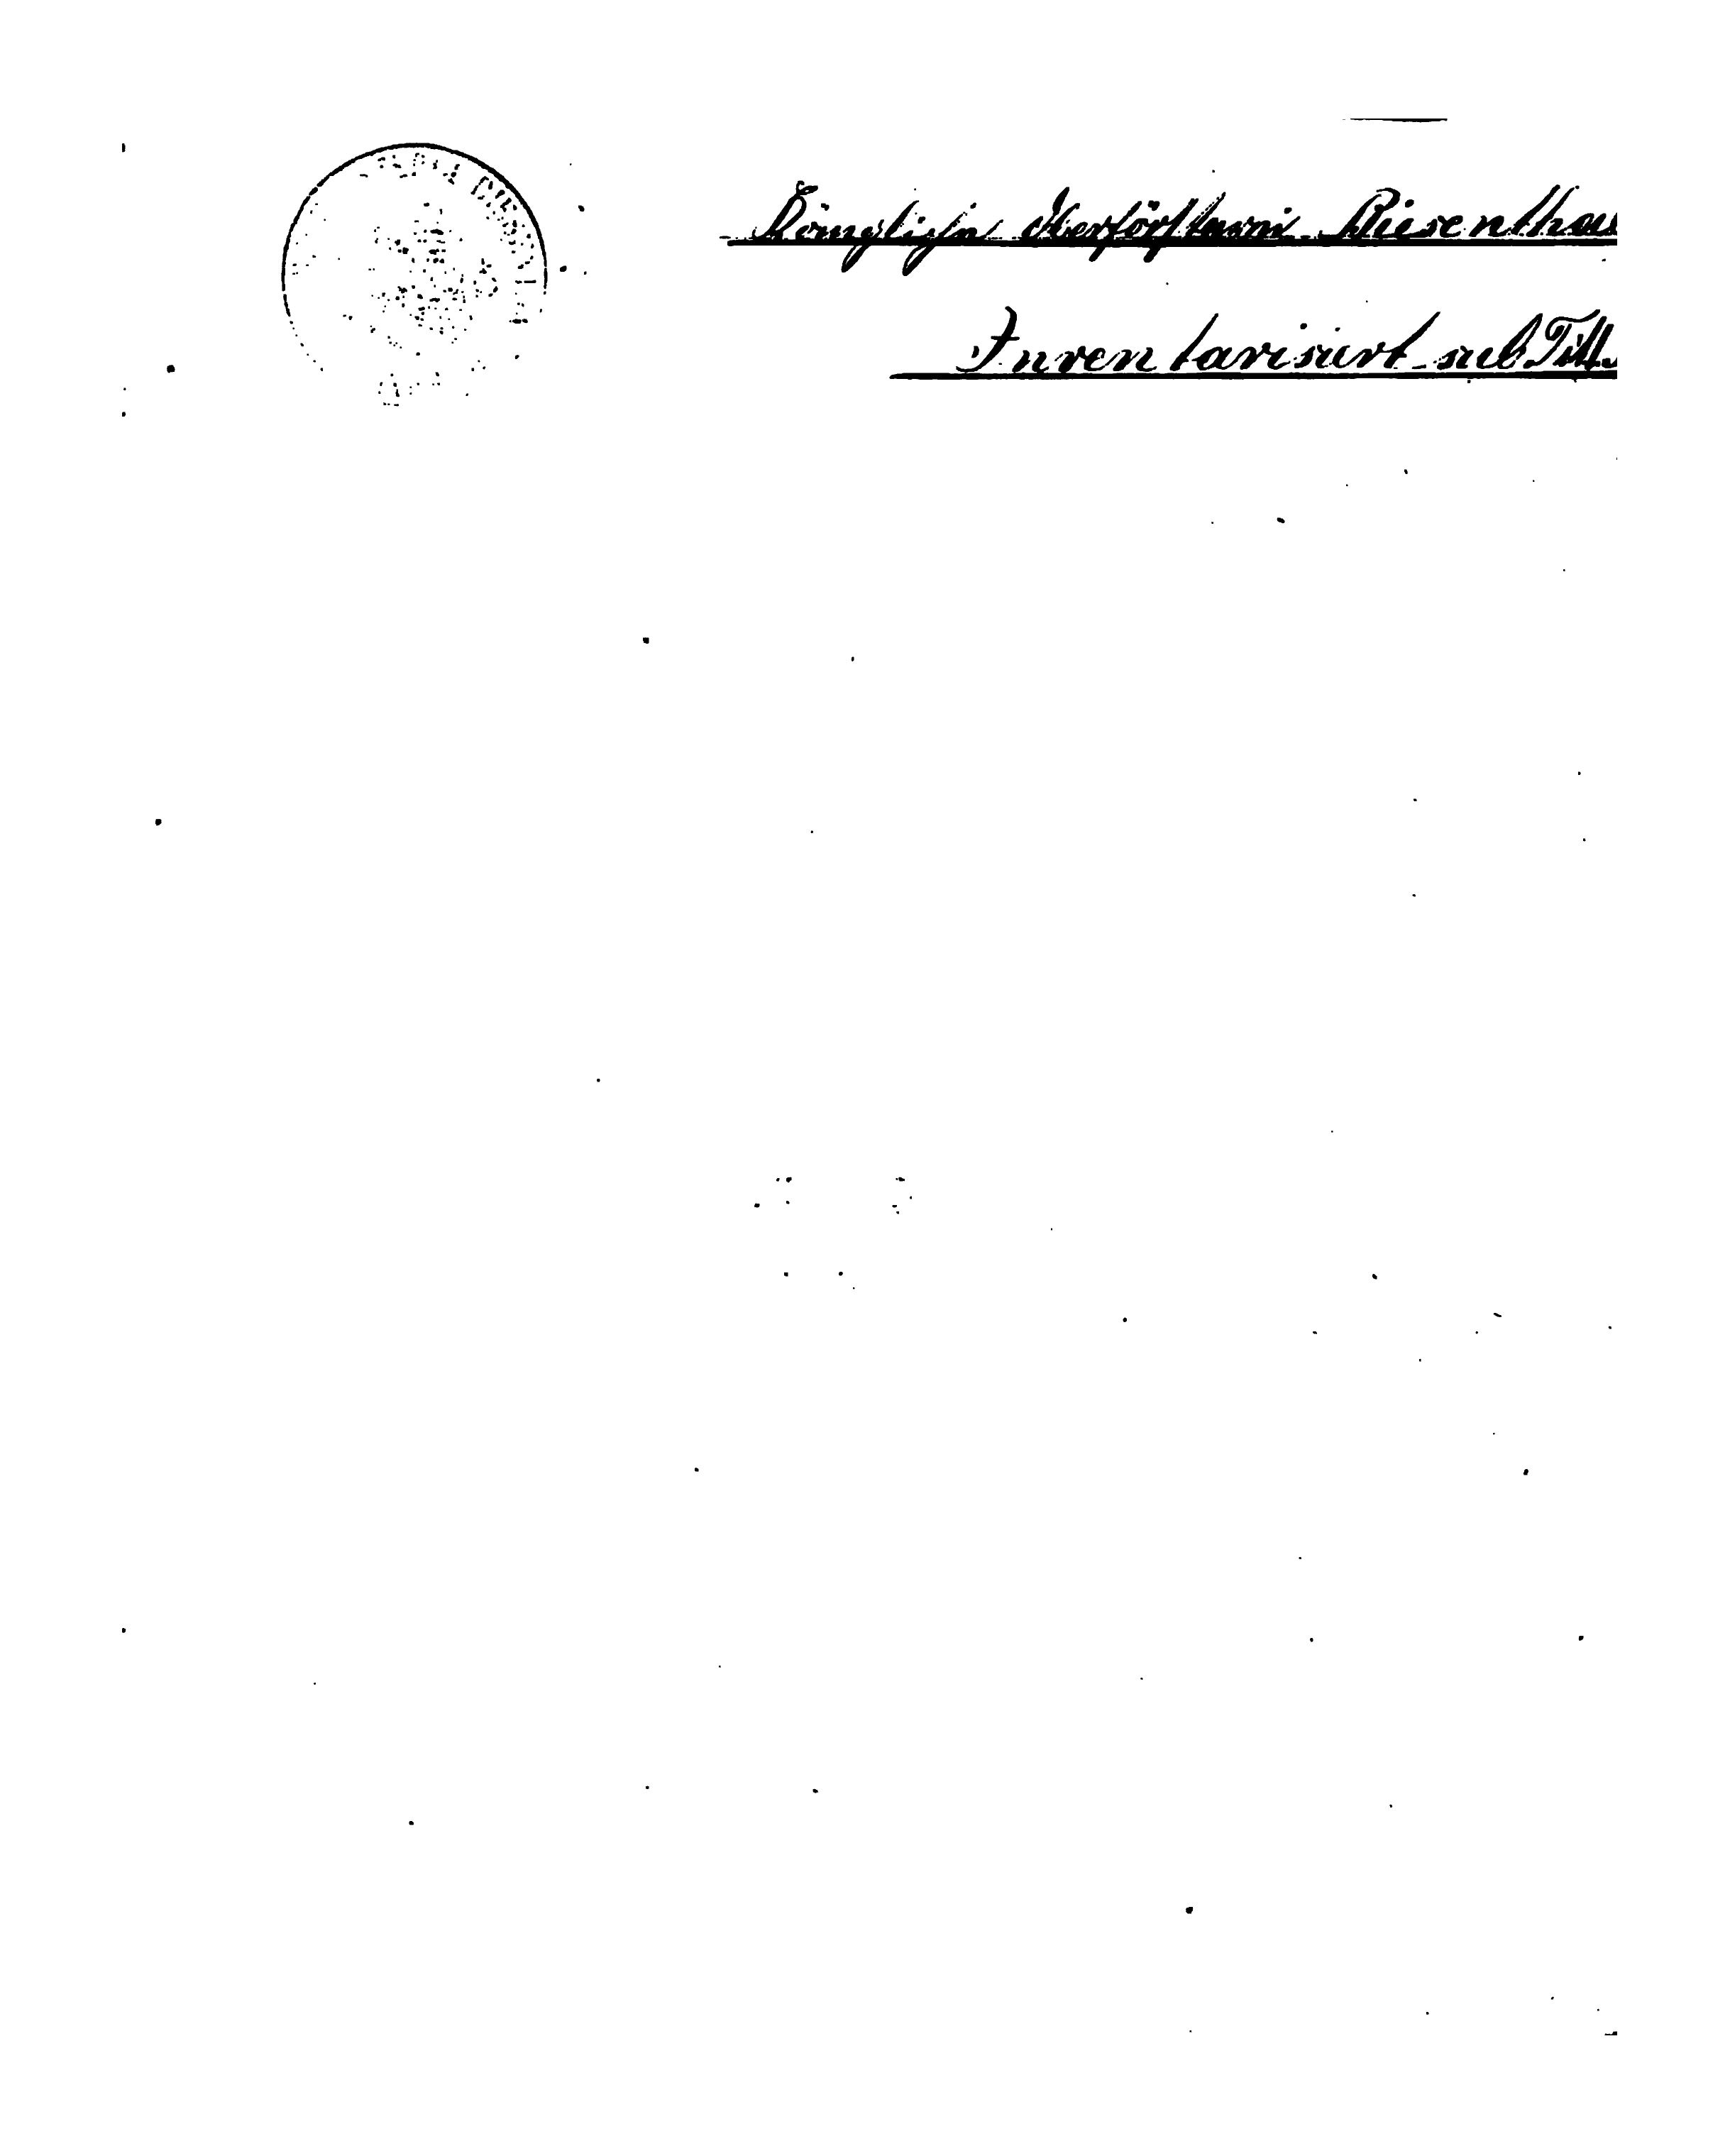 Königliche Oberförsterei Riesenthau
Inventarisirt sub Titl.